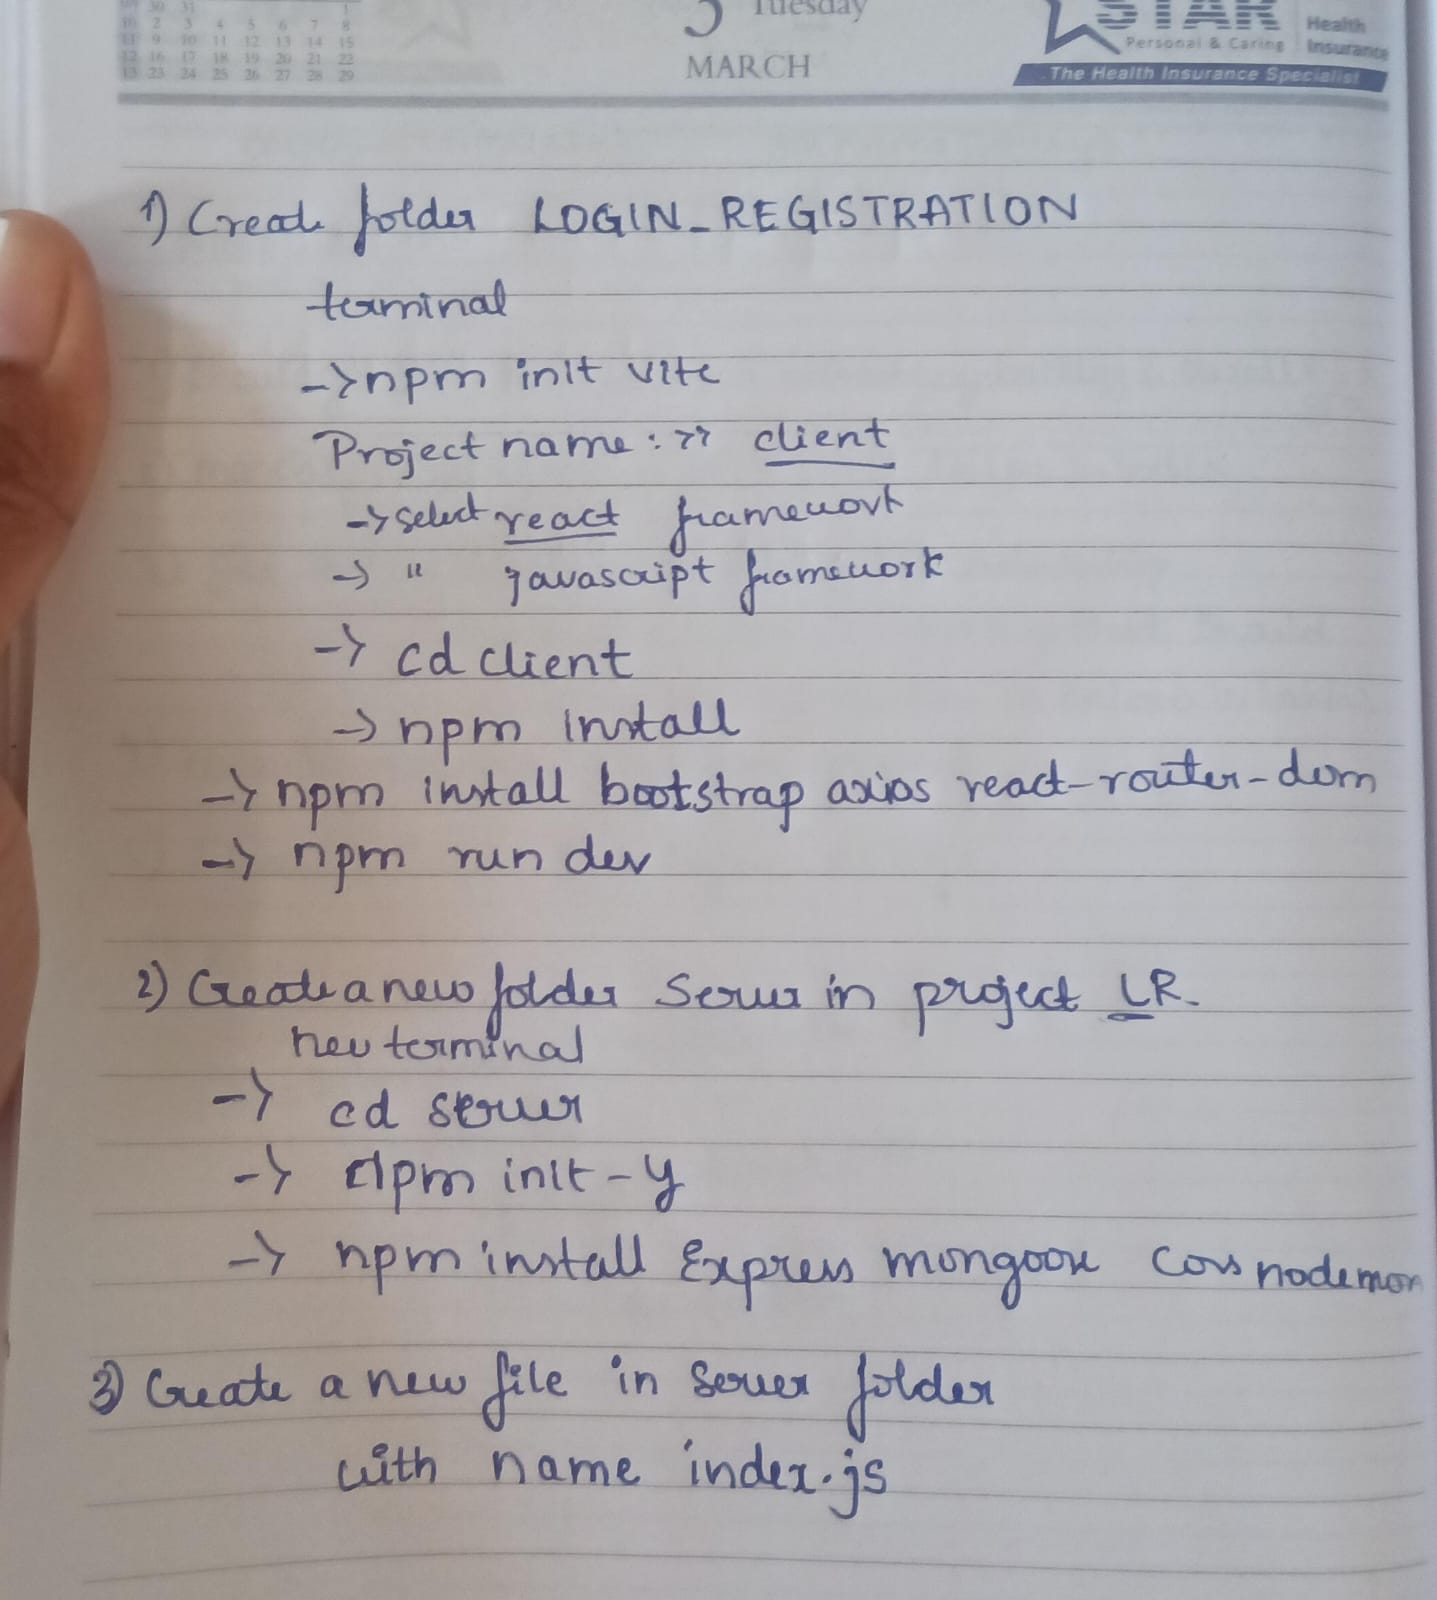 30 31 1
2 3 4 5 6 7 8
11 9 10 11 12 13 14 15
12 16 17 18 19 20 21 22
13 23 24 25 26 27 28 29
3 Tuesday
MARCH
STAR Health
Personal & Caring Insurance
The Health Insurance Specialist
1) Create folder LOGIN_REGISTRATION
terminal
-> npm init vite
Project name: >> client
-> select react framework
-> " javascript framework
-> cd client
-> npm install
-> npm install bootstrap axios react-router-dom
-> npm run dev
2) Create a new folder Server in project LR.
new terminal
-> cd server
-> npm init -y
-> npm install Express mongoose cors nodemon
3) Create a new file in Server folder
with name index.js